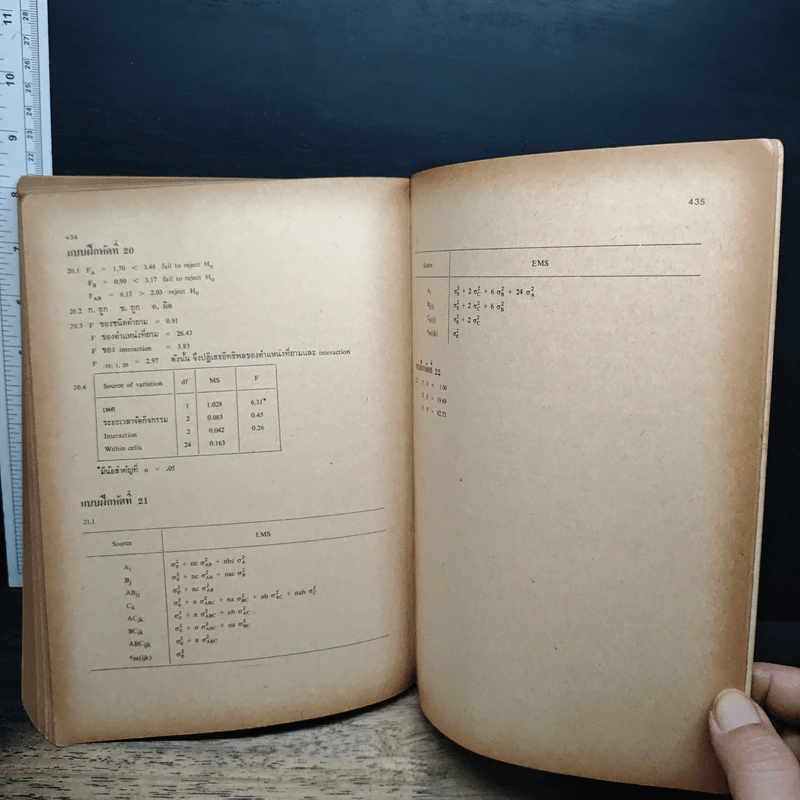 434
แบบฝึกหัดที่ 20
20.1 F_A = 1.70 < 3.48 fail to reject H_0
F_B = 0.99 < 3.17 fail to reject H_0
F_AB = 6.15 > 2.03 reject H_0
20.2 ก. ถูก ข. ถูก ค. ผิด
20.3 F ของชนิดคำถาม = 0.91
F ของตำแหน่งที่ถาม = 26.43
F ของ interaction = 3.83
F .10; 1, 20 = 2.97 ดังนั้น จึงปฏิเสธอิทธิพลของตำแหน่งที่ถามและ interaction
20.4 Source of variation df MS F
เพศ 1 1.028 6.31*
ระยะเวลาจัดกิจกรรม 2 0.083 0.45
Interaction 2 0.042 0.26
Within cells 24 0.163
*มีนัยสำคัญที่ α = .05
แบบฝึกหัดที่ 21
21.1
Source EMS
A_i σ²_ε + nc σ²_AB + nbc σ²_A
B_j σ²_ε + nc σ²_AB + nac σ²_B
AB_ij σ²_ε + nc σ²_AB
C_k σ²_ε + n σ²_ABC + na σ²_BC + nb σ²_AC + nab σ²_C
AC_ik σ²_ε + n σ²_ABC + nb σ²_AC
BC_jk σ²_ε + n σ²_ABC + na σ²_BC
ABC_ijk σ²_ε + n σ²_ABC
ε_m(ijk) σ²_ε
435
Source EMS
A_i σ²_ε + 2 σ²_C + 6 σ²_B + 24 σ²_A
B_j(i) σ²_ε + 2 σ²_C + 6 σ²_B
σ²_ε + 2 σ²_C
σ²_ε
22
< 1.00
= 19.69
= 52.75
11
10
9
8
7
28
27
26
25
24
23
22